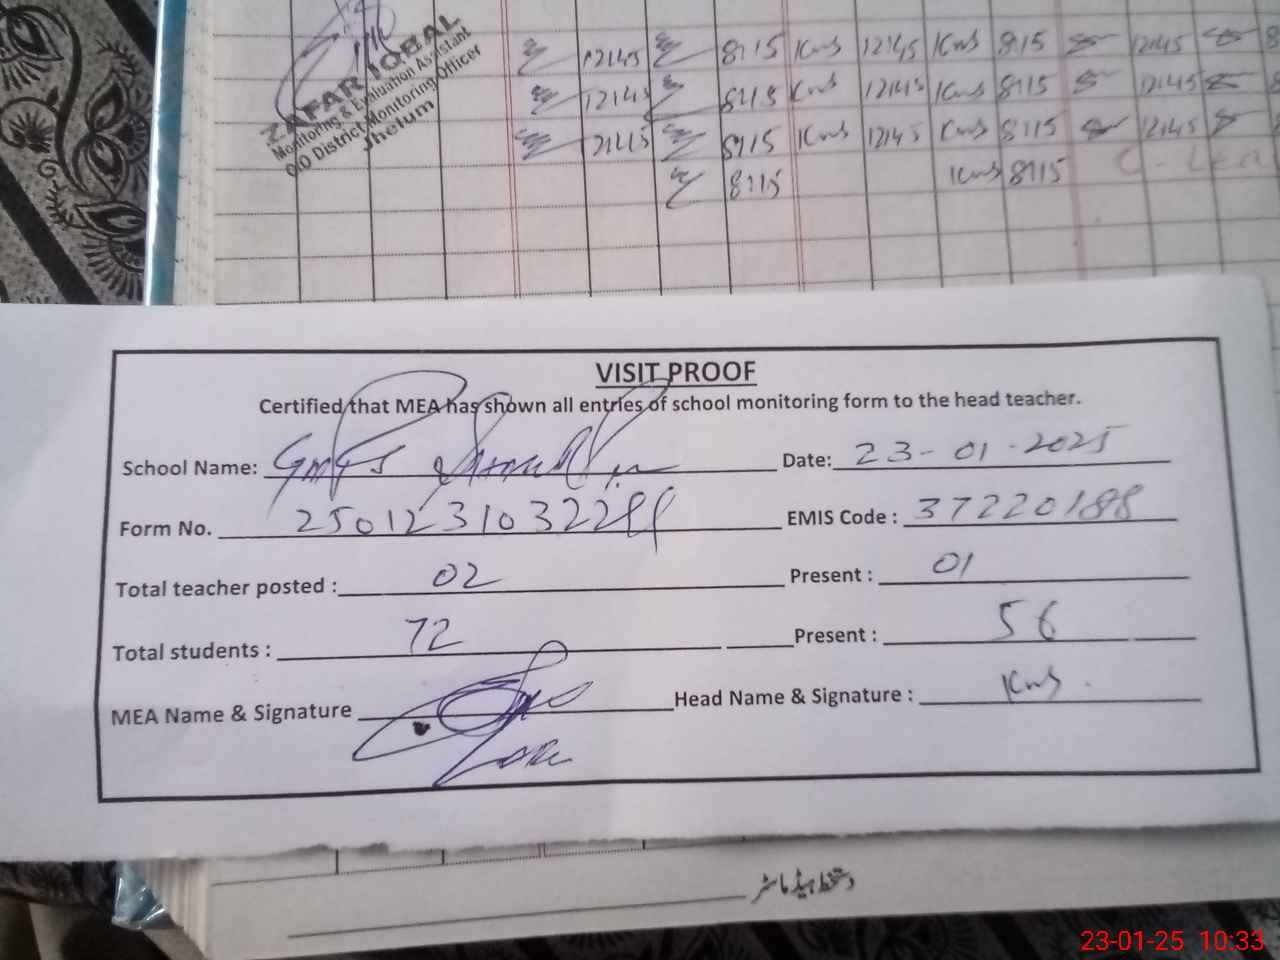 ZAFAR IQBAL
Monitoring & Evaluation Assistant
O/O District Monitoring Officer
Jhelum
12145 8115 Kws 12145 Kws 8115 12145
12145 8115 Kws 12145 Kws 8115 12145
12145 8115 Kws 12145 Kws 8115 12145
8115 Kws 8115
VISIT PROOF
Certified that MEA has shown all entries of school monitoring form to the head teacher.
School Name: Date: 23-01-2025
Form No. EMIS Code : 37220188
Total teacher posted : 02 Present : 01
Total students : 72 Present : 56
MEA Name & Signature Head Name & Signature : Kws
دستخط ہیڈ ماسٹر
23-01-25 10:33